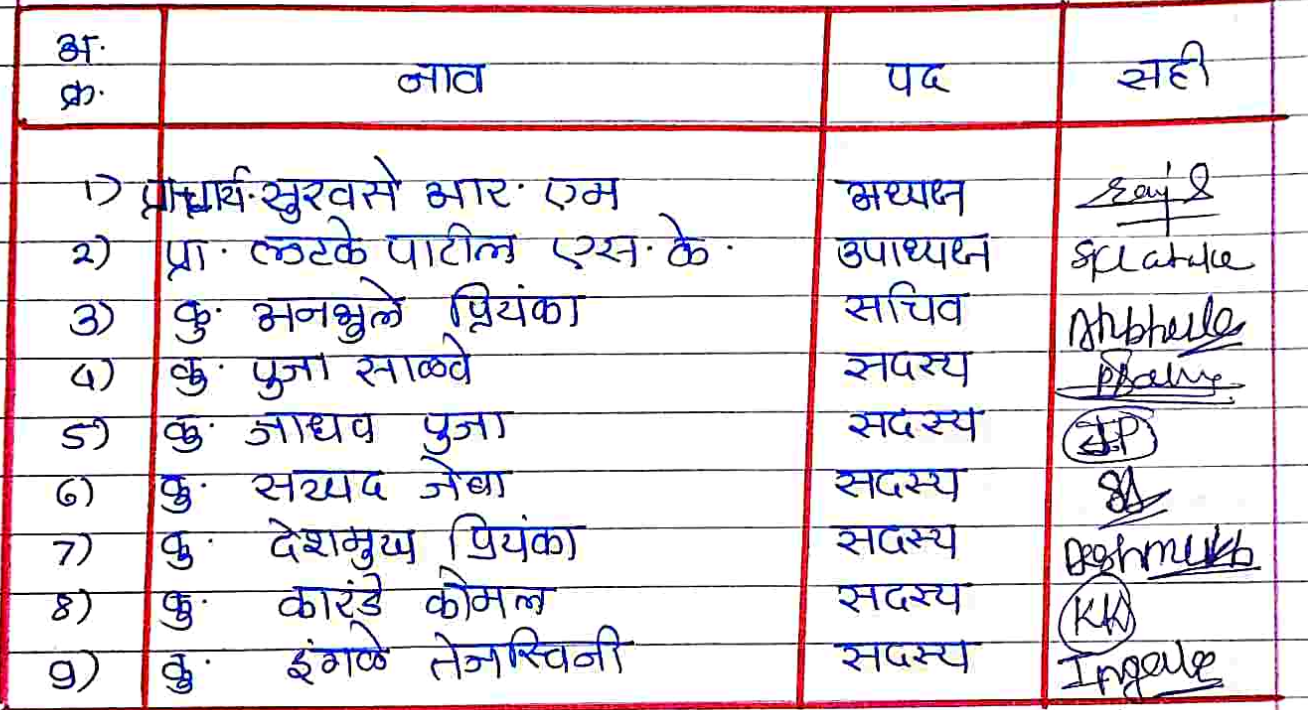 अ.क्र. नाव पद सही
1) प्राचार्य. सुरवसे आर. एम अध्यक्ष
2) प्रा. लटके पाटील एस. के. उपाध्यक्ष
3) कु. अनभुले प्रियंका सचिव
4) कु. पुजा साळवे सदस्य
5) कु. जाधव पुजा सदस्य JP
6) कु. सय्यद जेबा सदस्य
7) कु. देशमुख प्रियंका सदस्य Deshmukh
8) कु. कारंडे कोमल सदस्य KK
9) कु. इंगळे तेजस्विनी सदस्य Ingale